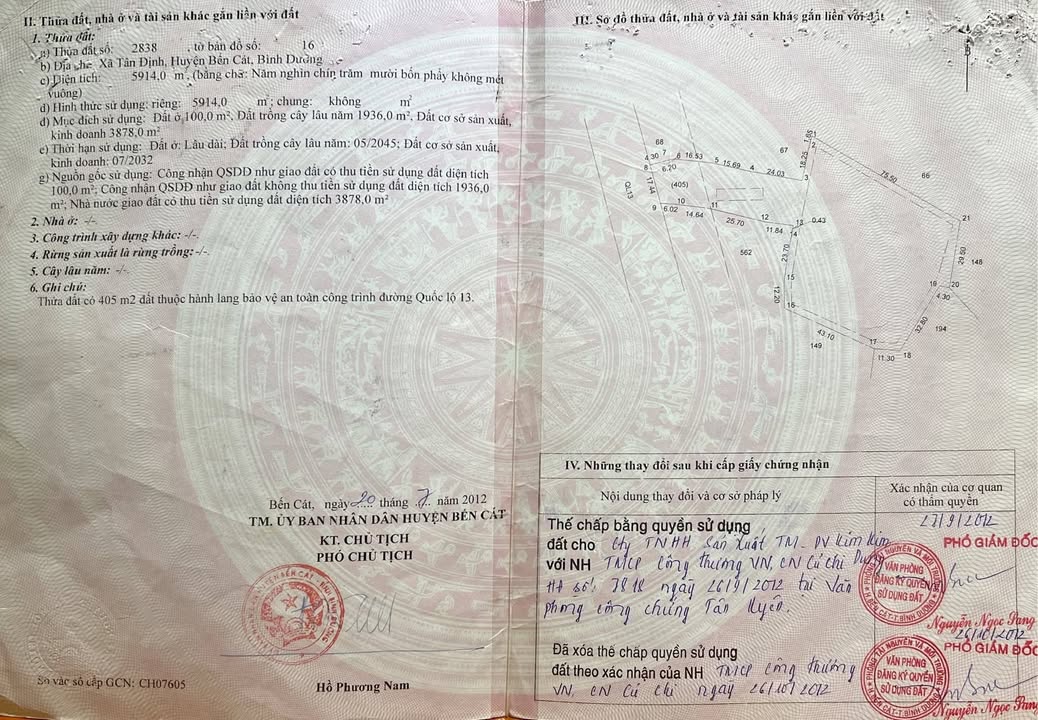 II. Thửa đất, nhà ở và tài sản khác gắn liền với đất
1. Thửa đất:
a) Thửa đất số: 2838 , tờ bản đồ số: 16
b) Địa chỉ: Xã Tân Định, Huyện Bến Cát, Bình Dương
c) Diện tích: 5914,0 m², (bằng chữ: Năm nghìn chín trăm mười bốn phẩy không mét
vuông)
d) Hình thức sử dụng: riêng: 5914,0 m²; chung: không m²
đ) Mục đích sử dụng: Đất ở 100,0 m², Đất trồng cây lâu năm 1936,0 m², Đất cơ sở sản xuất,
kinh doanh 3878,0 m²
e) Thời hạn sử dụng: Đất ở: Lâu dài; Đất trồng cây lâu năm: 05/2045; Đất cơ sở sản xuất,
kinh doanh: 07/2032
g) Nguồn gốc sử dụng: Công nhận QSDĐ như giao đất có thu tiền sử dụng đất diện tích
100,0 m²; Công nhận QSDĐ như giao đất không thu tiền sử dụng đất diện tích 1936,0
m²; Nhà nước giao đất có thu tiền sử dụng đất diện tích 3878,0 m²
2. Nhà ở: -/-
3. Công trình xây dựng khác: -/-.
4. Rừng sản xuất là rừng trồng:-/-.
5. Cây lâu năm: -/-.
6. Ghi chú:
Thửa đất có 405 m2 đất thuộc hành lang bảo vệ an toàn công trình đường Quốc lộ 13.
Bến Cát, ngày 20 tháng 7 năm 2012
TM. ỦY BAN NHÂN DÂN HUYỆN BẾN CÁT
KT. CHỦ TỊCH
PHÓ CHỦ TỊCH
Hồ Phương Nam
Số vào sổ cấp GCN: CH07605
III. Sơ đồ thửa đất, nhà ở và tài sản khác gắn liền với đất
1.65 1
2
68
67
4.30 7 6 16.53 5 15.69 4 24.03 3
18.25
75.50
66
8 6.20
QL13
17.44
(405)
9 6.02 10 14.64 11 25.70 12 11.84 13 0.43
14
21
562
23.70
29.50
148
15
12.20
16
19 20
4.30
43.10
32.80
194
149
17
11.30 18
IV. Những thay đổi sau khi cấp giấy chứng nhận
Nội dung thay đổi và cơ sở pháp lý
Xác nhận của cơ quan
có thẩm quyền
Thế chấp bằng quyền sử dụng
27/9/2012
đất cho Cty TNHH Sản Xuất TM - DV Kim Kim
PHÓ GIÁM ĐỐC
với NH TMCP Công thương VN, CN Củ chi
HĐ số: 3818 ngày 26/9/2012 tại Văn
phòng công chứng Tân Uyên.
VĂN PHÒNG
ĐĂNG KÝ QUYỀN
SỬ DỤNG ĐẤT
Nguyễn Ngọc Sang
26/10/2012
Đã xóa thế chấp quyền sử dụng
PHÓ GIÁM ĐỐC
đất theo xác nhận của NH TMCP Công thương
VN, CN Củ chi ngày 26/10/2012
VĂN PHÒNG
ĐĂNG KÝ QUYỀN
SỬ DỤNG ĐẤT
Nguyễn Ngọc Sang